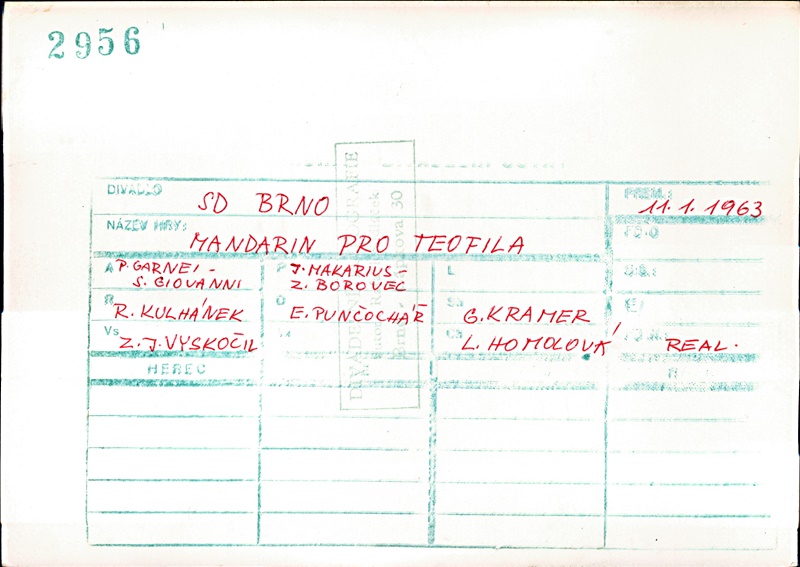 2956
DIVADLO SD BRNO PREM.: 11.1.1963
NÁZEV HRY: MANDARIN PRO TEOFILA
A P. GARNEI - S. GIOVANNI
P J. MAKARIUS - Z. BOROVEC
L
R R. KULHÁNEK
O E. PUNČOCHÁŘ
G. KRAMER
Vs Z. J. VYSKOČIL
L. HOMOLOVÁ
REAL.
HEREC
DIVADELNÍ FOTOGRAFIE